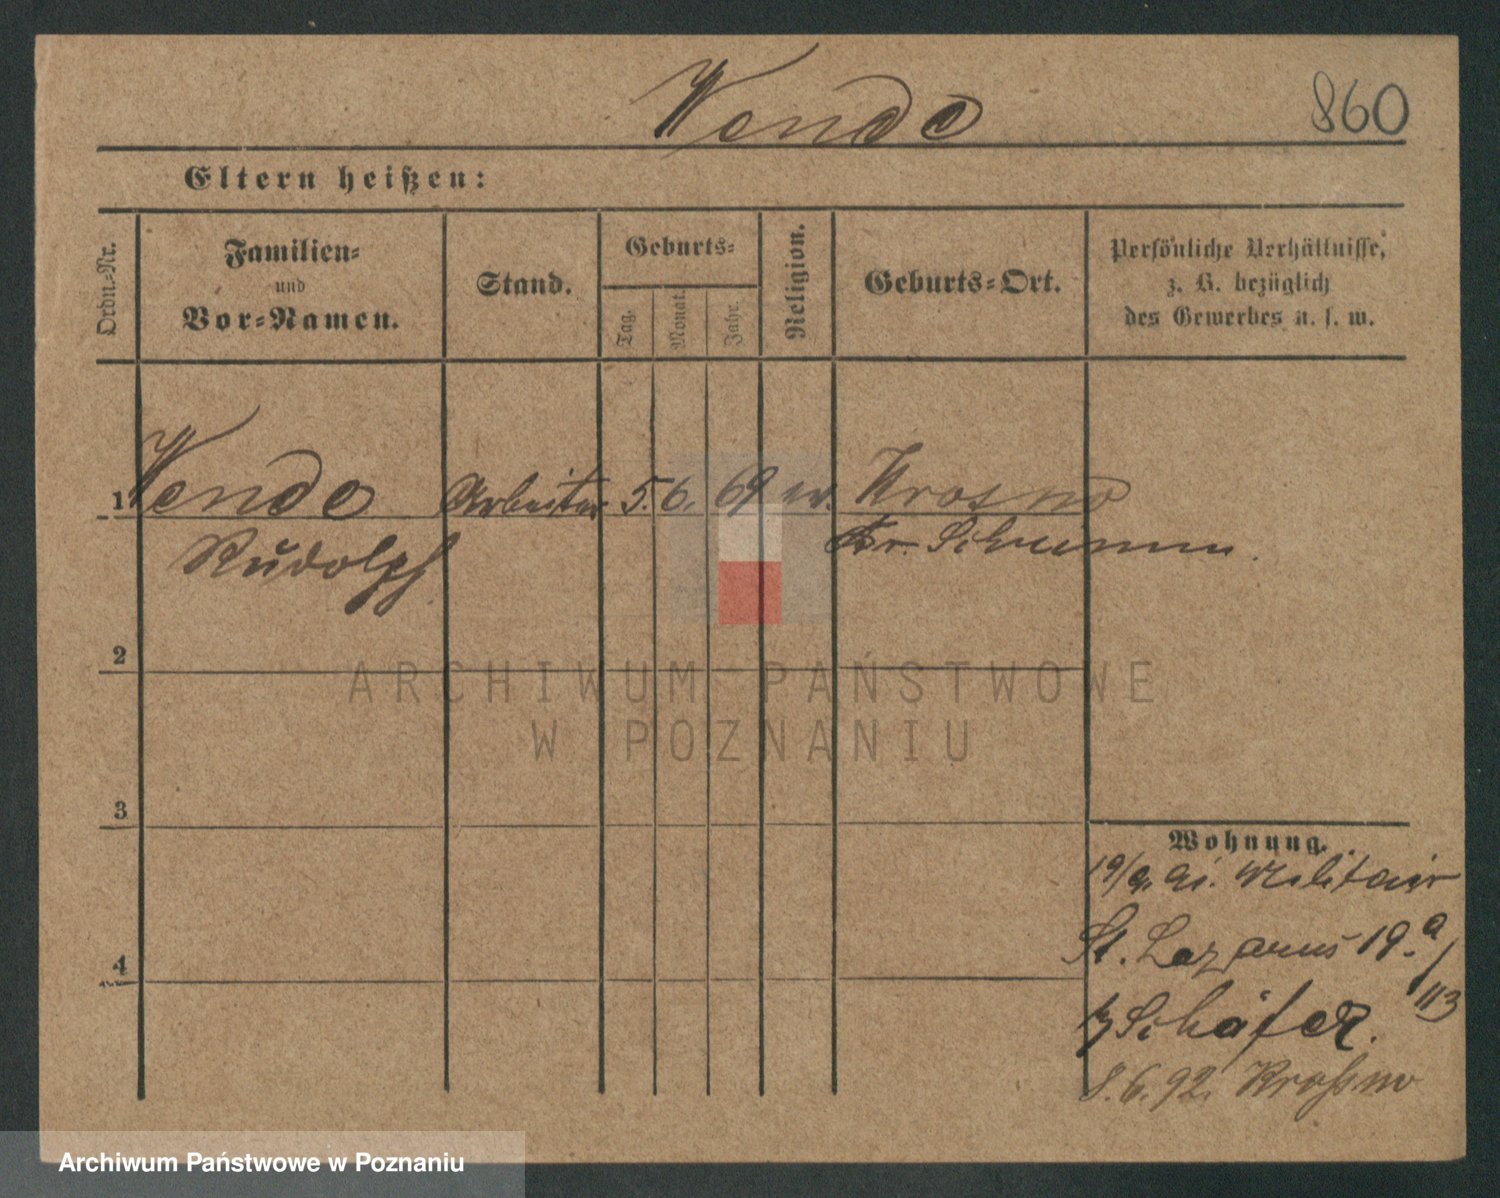 Wende
860
Eltern heißen:
Ordn.-Nr.
Familien-
und
Vor-Namen.
Stand.
Geburts-
Tag.
Monat.
Jahr.
Religion.
Geburts-Ort.
Persönliche Verhältnisse,
z. B. bezüglich
des Gewerbes u. s. w.
1 Wende Arbeiter 5. 6. 69 ev. Krosno
Rudolph Kr. Schrimm.
2
ARCHIWUM PAŃSTWOWE
W POZNANIU
3
Wohnung.
19/9. 91. Militair
St. Lazarus 19.a/
113
b/ Schäfer.
4
8.6.92. Kroßno
Archiwum Państwowe w Poznaniu